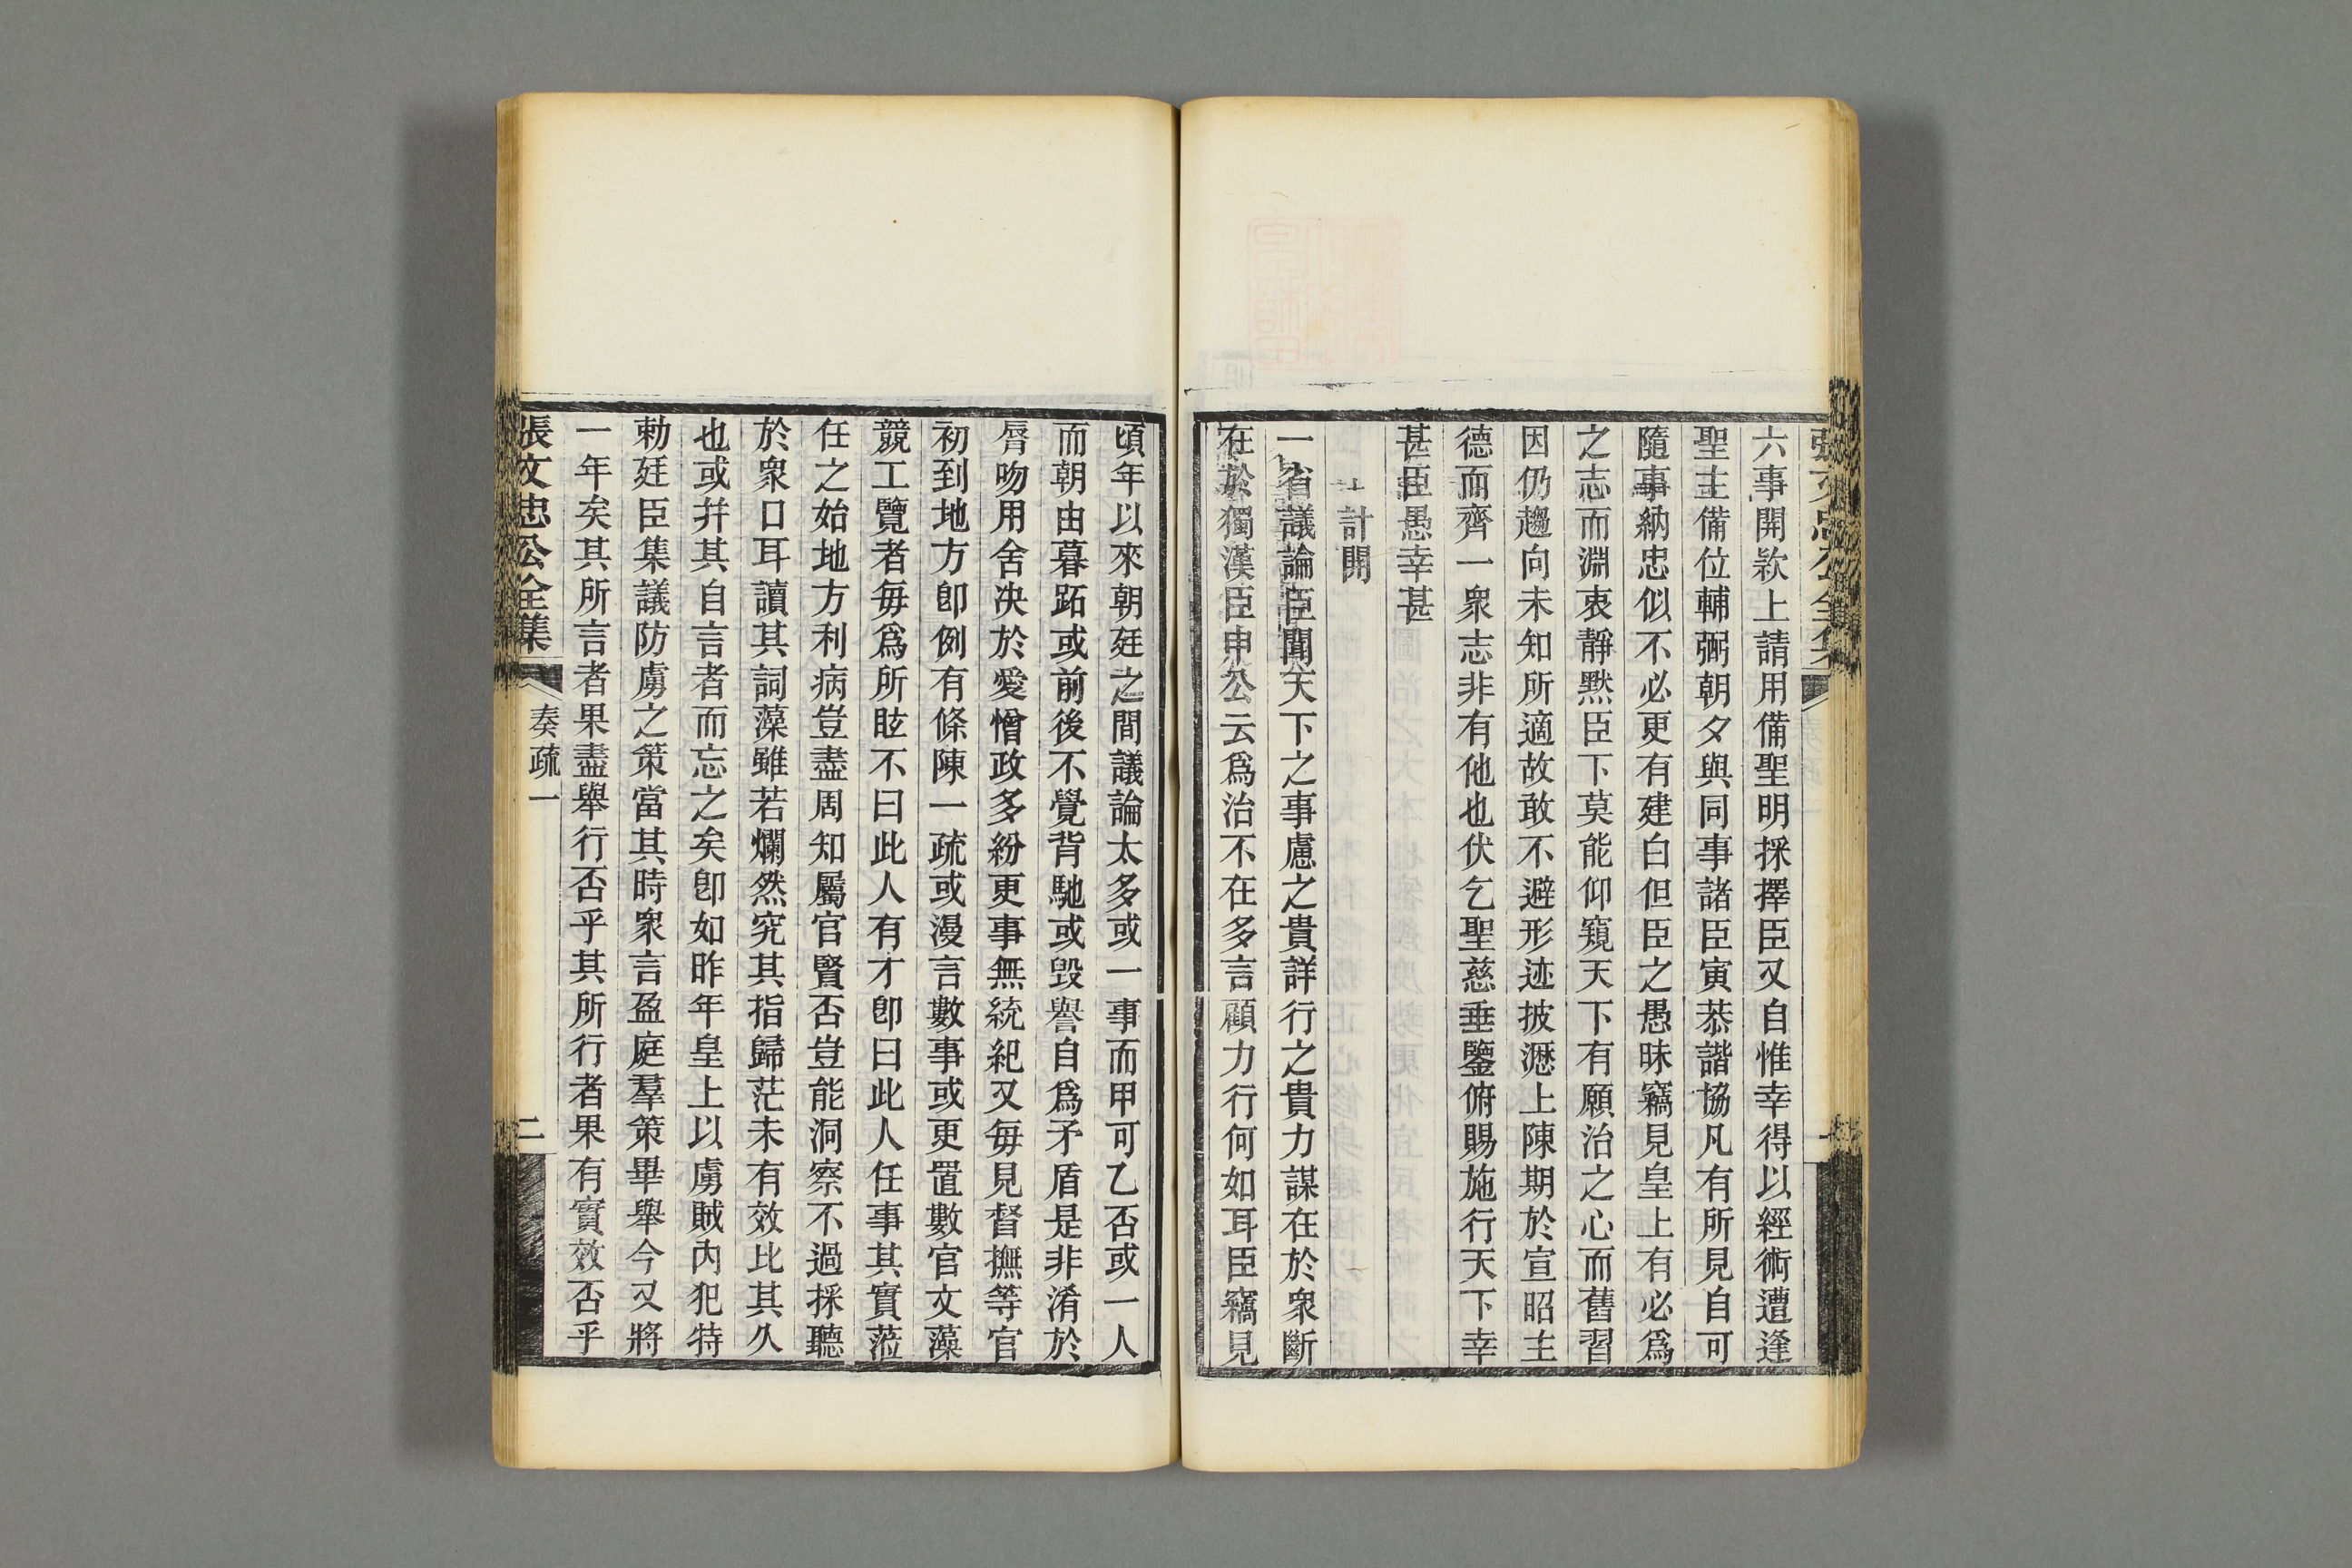 六事開欵上請用備聖明採擇臣又自惟幸得以經術遭逢
聖主備位輔弼朝夕與同事諸臣寅恭諧協凡有所見自可
隨事納忠似不必更有建白但臣之愚昧竊見皇上有必爲
之志而淵衷靜黙臣下莫能仰窺天下有願治之心而舊習
因仍趨向未知所適故敢不避形迹披瀝上陳期於宣昭主
德而齊一衆志非有他也伏乞聖慈垂鑒俯賜施行天下幸
甚臣愚幸甚
計開
一省議論臣聞天下之事慮之貴詳行之貴力謀在於衆斷
在於獨漢臣申公云爲治不在多言顧力行何如耳臣竊見
頃年以來朝廷之間議論太多或一事而甲可乙否或一人
而朝由暮跖或前後不覺背馳或毀譽自爲矛盾是非淆於
脣吻用舍决於愛憎政多紛更事無統紀又每見督撫等官
初到地方卽例有條陳一疏或漫言數事或更置數官文藻
競工覽者每爲所眩不曰此人有才卽曰此人任事其實蒞
任之始地方利病豈盡周知屬官賢否豈能洞察不過採聽
於衆口耳讀其詞藻雖若爛然究其指歸茫未有效比其久
也或幷其自言者而忘之矣卽如昨年皇上以虜賊內犯特
勅廷臣集議防虜之策當其時衆言盈庭羣策畢舉今又將
一年矣其所言者果盡舉行否乎其所行者果有實效否乎
張文忠公全集
奏疏一
二